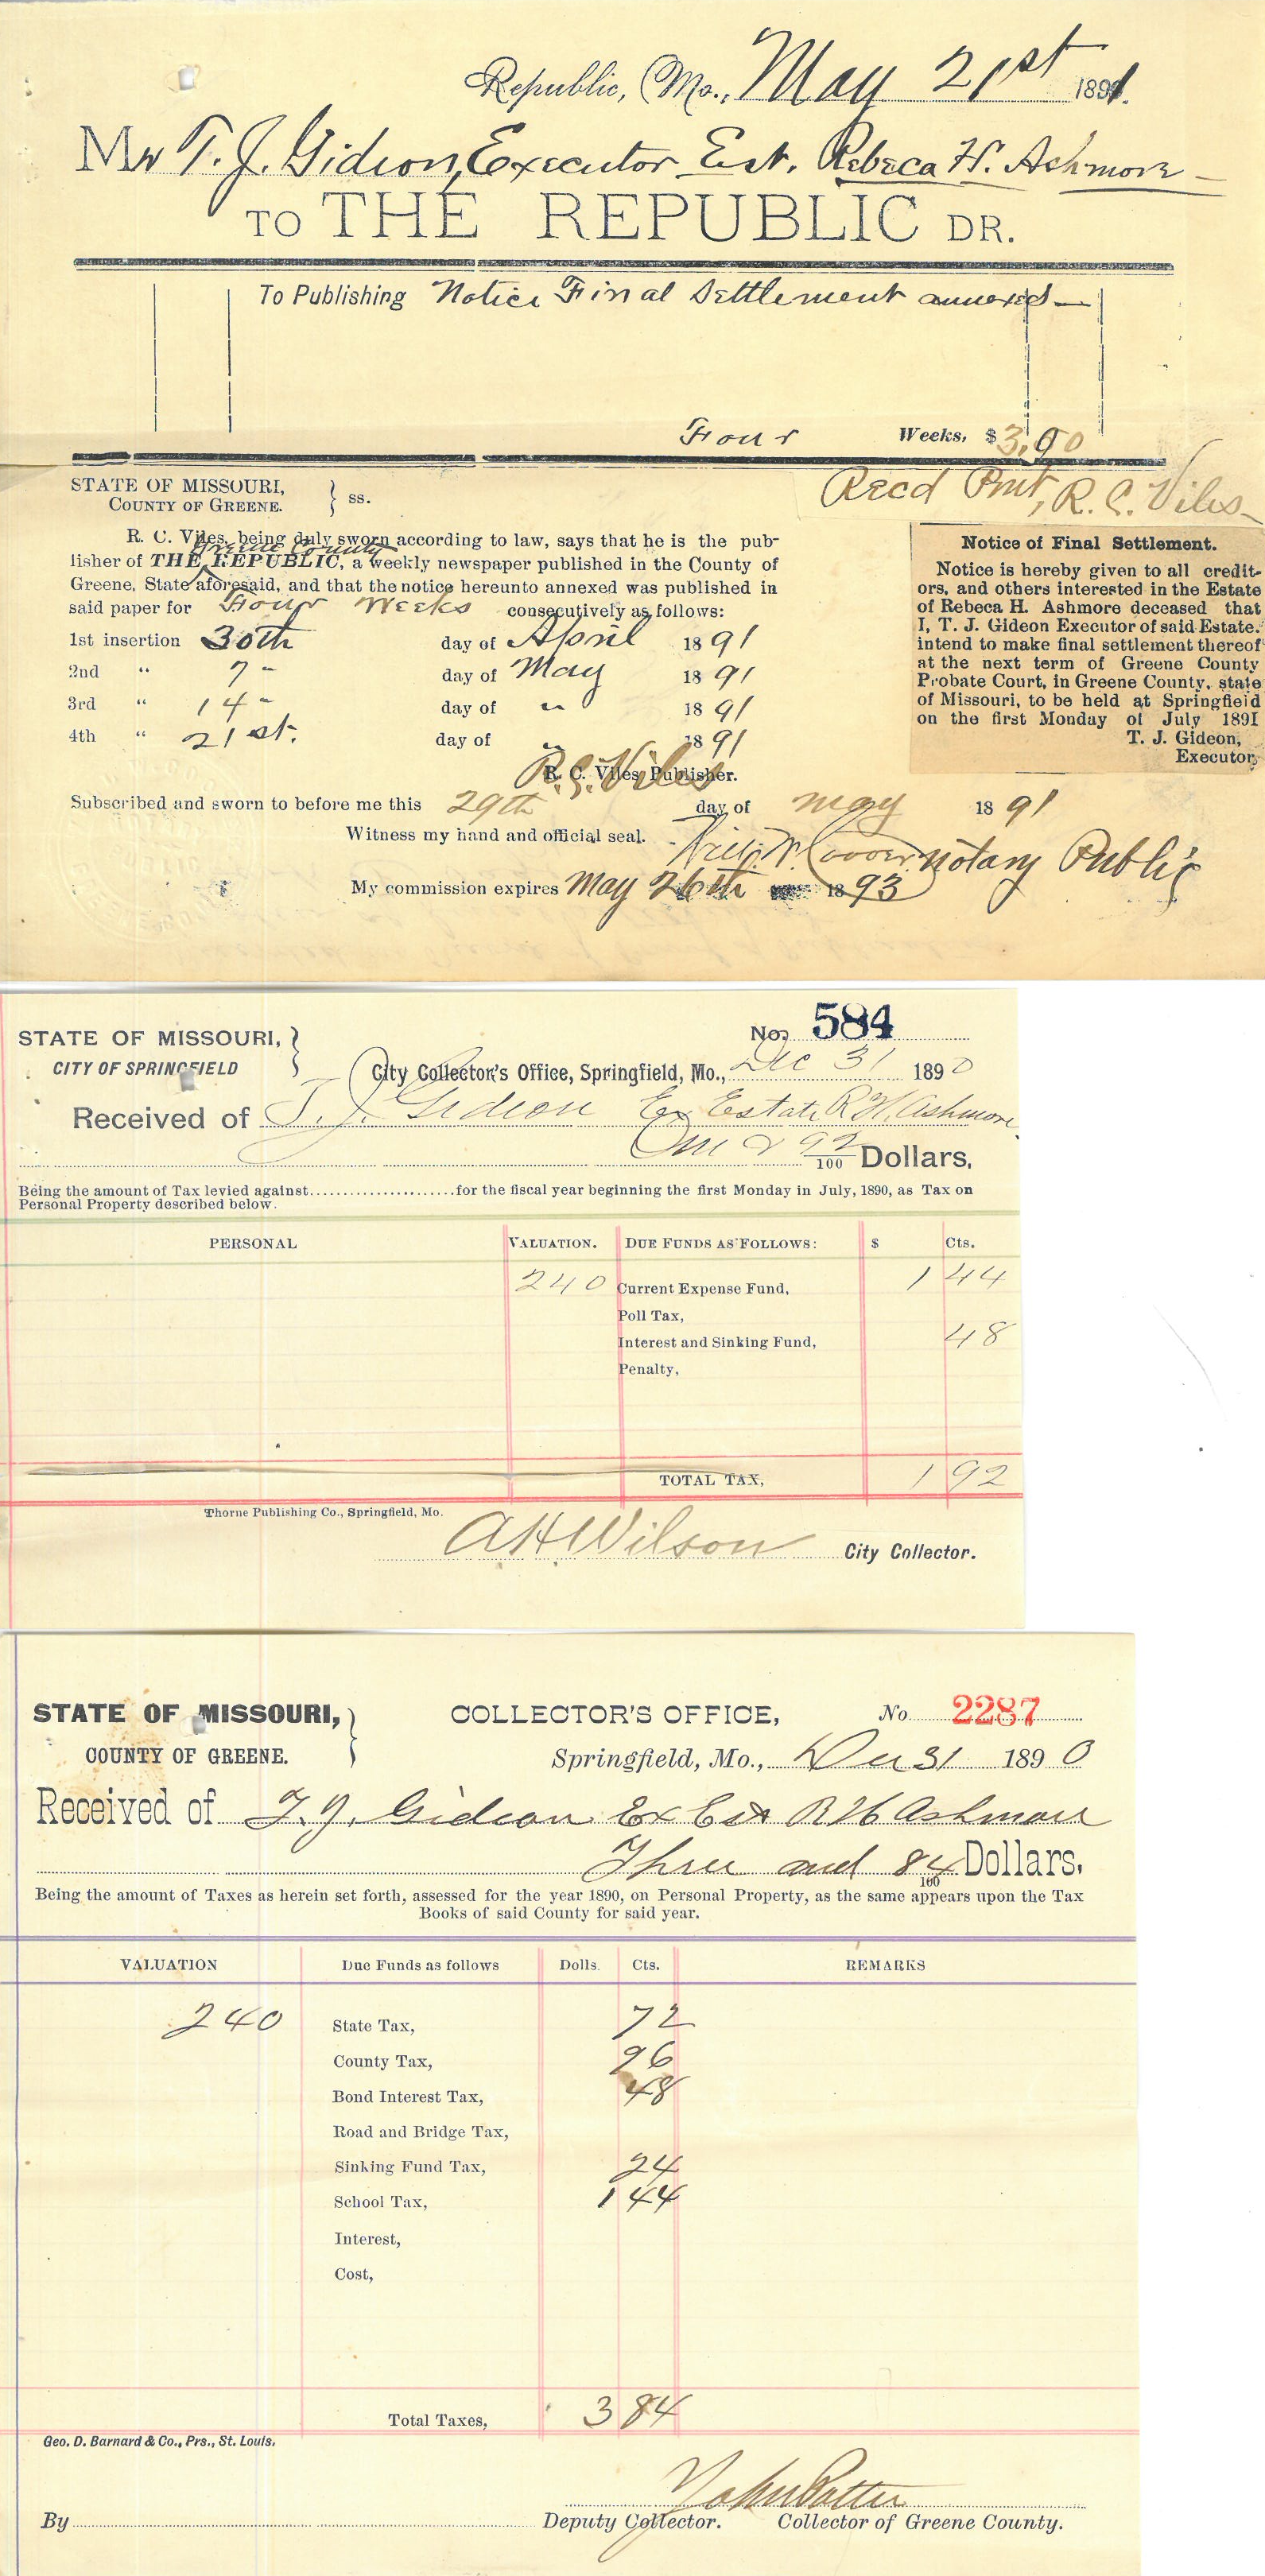 Republic, Mo., May 21st 1891.
Mr T. J. Gideon, Executor Est. Rebeca H. Ashmore
TO THE REPUBLIC DR.
To Publishing Notice Final Settlement annexed
Four Weeks, $3.00
Recd Pmt, R. C. Viles
STATE OF MISSOURI,
COUNTY OF GREENE. } ss.
R. C. Viles, being duly sworn according to law, says that he is the pub-
Greene County
lisher of THE REPUBLIC, a weekly newspaper published in the County of
Greene, State aforesaid, and that the notice hereunto annexed was published in
said paper for Four Weeks consecutively as follows:
1st insertion 30th day of April 1891
2nd " 7 " day of May 1891
3rd " 14 " day of " 1891
4th " 21st. day of " 1891
R. C. Viles
R. C. Viles, Publisher.
Notice of Final Settlement.
Notice is hereby given to all credit-
ors, and others interested in the Estate
of Rebeca H. Ashmore deceased that
I, T. J. Gideon Executor of said Estate.
intend to make final settlement thereof
at the next term of Greene County
Probate Court, in Greene County, state
of Missouri, to be held at Springfield
on the first Monday of July 1891
T. J. Gideon,
Executor.
Subscribed and sworn to before me this 29th day of may 1891
Witness my hand and official seal.
notary Public
My commission expires May 26th 1893
No. 584
STATE OF MISSOURI, }
CITY OF SPRINGFIELD
City Collector's Office, Springfield, Mo., Dec 31 1890
Received of T. J. Gideon Ex Estate R H. Ashmore
One & 92/100 Dollars,
Being the amount of Tax levied against for the fiscal year beginning the first Monday in July, 1890, as Tax on
Personal Property described below.
PERSONAL VALUATION. DUE FUNDS AS FOLLOWS: $ Cts.
240 Current Expense Fund, 1 44
Poll Tax,
Interest and Sinking Fund, 48
Penalty,
TOTAL TAX, 1 92
Thorne Publishing Co., Springfield, Mo.
A H Wilson City Collector.
STATE OF MISSOURI, } COLLECTOR'S OFFICE, No 2287
COUNTY OF GREENE. Springfield, Mo., Dec 31 1890
Received of T. J. Gideon Ex Est R H Ashmore
Three and 84/100 Dollars.
Being the amount of Taxes as herein set forth, assessed for the year 1890, on Personal Property, as the same appears upon the Tax
Books of said County for said year.
VALUATION Due Funds as follows Dolls. Cts. REMARKS
240 State Tax, 72
County Tax, 96
Bond Interest Tax, 48
Road and Bridge Tax,
Sinking Fund Tax, 24
School Tax, 1 44
Interest,
Cost,
Total Taxes, 3 84
Geo. D. Barnard & Co., Prs., St. Louis.
John Potter
By Deputy Collector. Collector of Greene County.